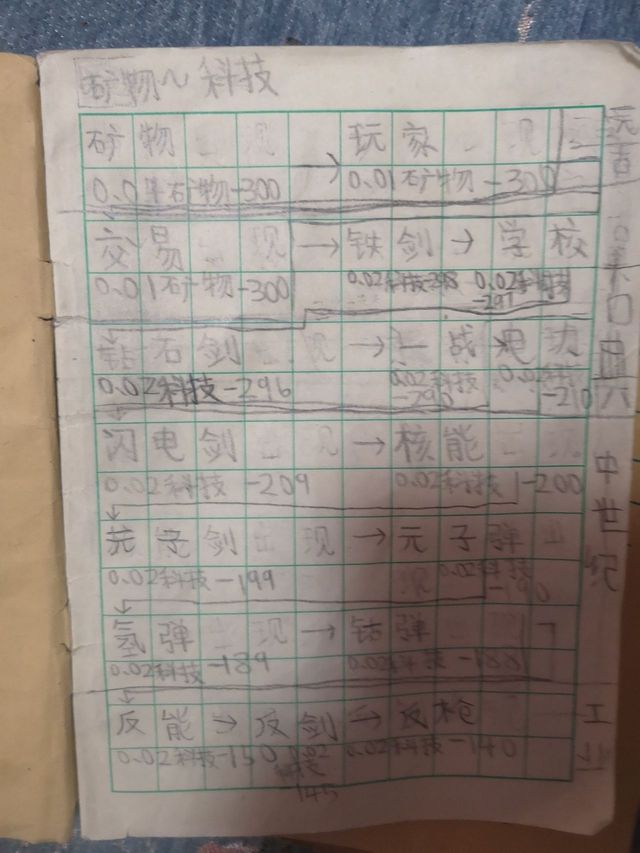 矿物~科技
矿物出现→玩家出现
0.01矿物-300 0.01矿物-300
交易出现→铁剑→学校
0.01矿物-300 0.02科技298 0.02科技-297
钻石剑出现→一战
0.02科技-296 0.02科技-290 -210
闪电剑出现→核能出现
0.02科技-209 0.02科技-200
剑出现→元子弹出现
0.02科技-199 0.02科技-190
氢弹出现→钴弹出
0.02科技-189 0.02科技-188
反能→反剑→反枪
0.02科技-150 0.02科技-145 0.02科技-140
中世纪
工业